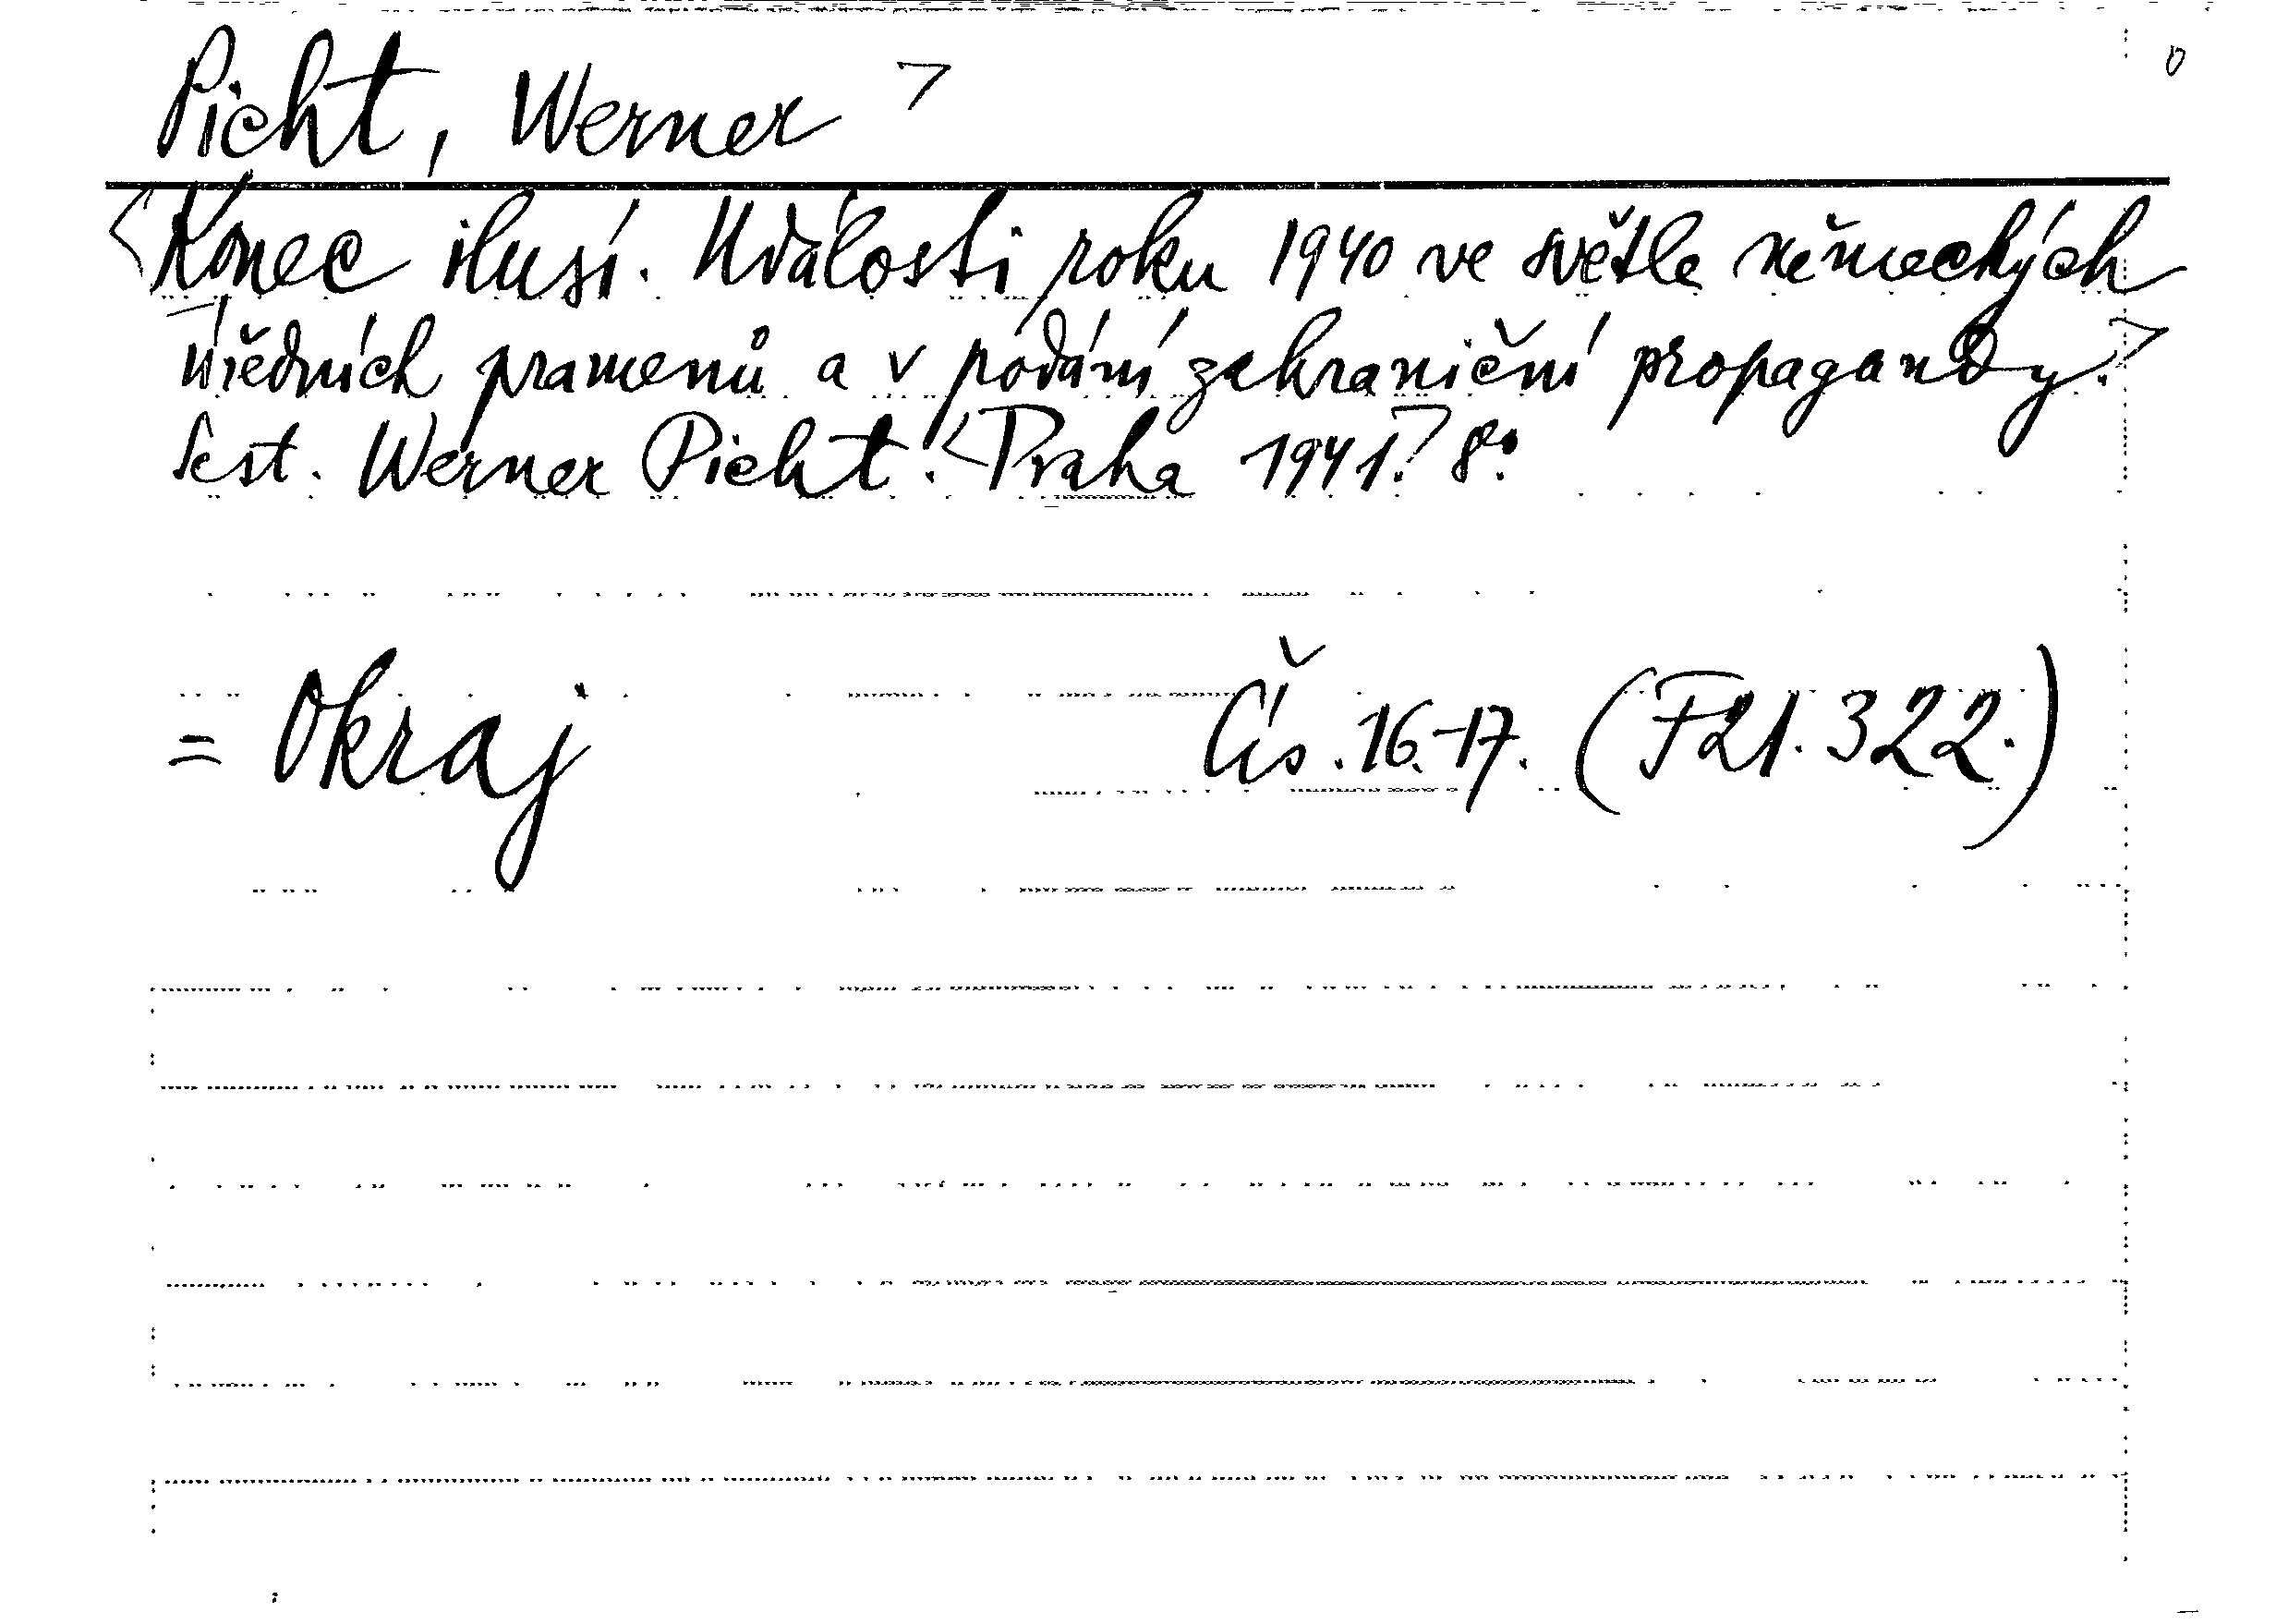 Picht, Werner
Konec ilusí. Události roku 1940 ve světle německých
úředních pramenů a v podání zahraniční propagandy.
Sest. Werner Picht. Praha 1941. 8°.
= Okraj Čís. 16.-17. (F21.322.)